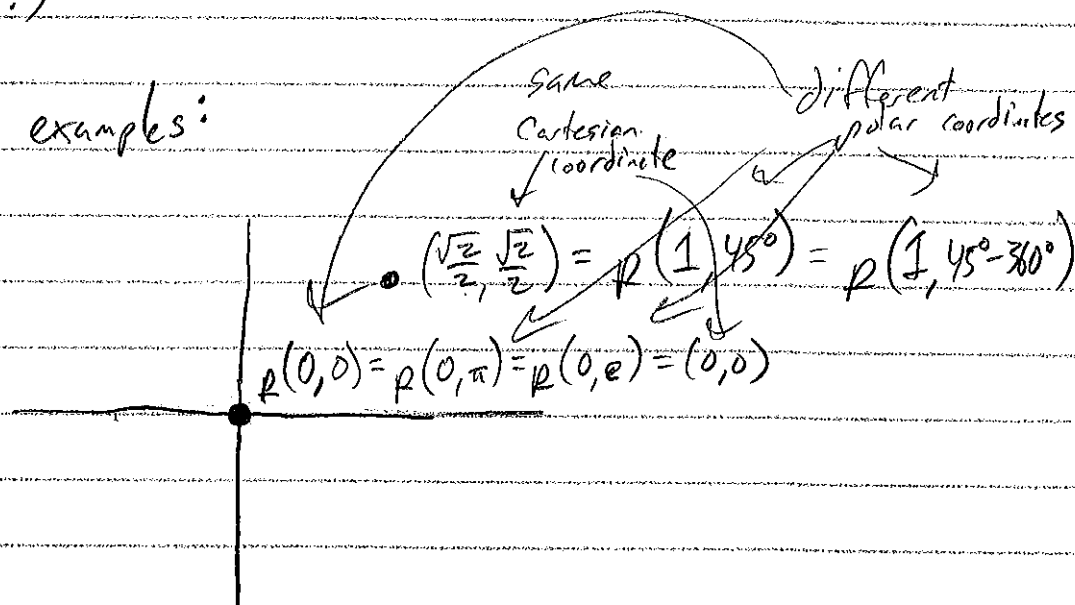 :)
examples:
same
Cartesian
coordinate
different
polar coordinates
(√2/2, √2/2) = p(1, 45°) = p(1, 45°-360°)
p(0,0) = p(0,π) = p(0,e) = (0,0)